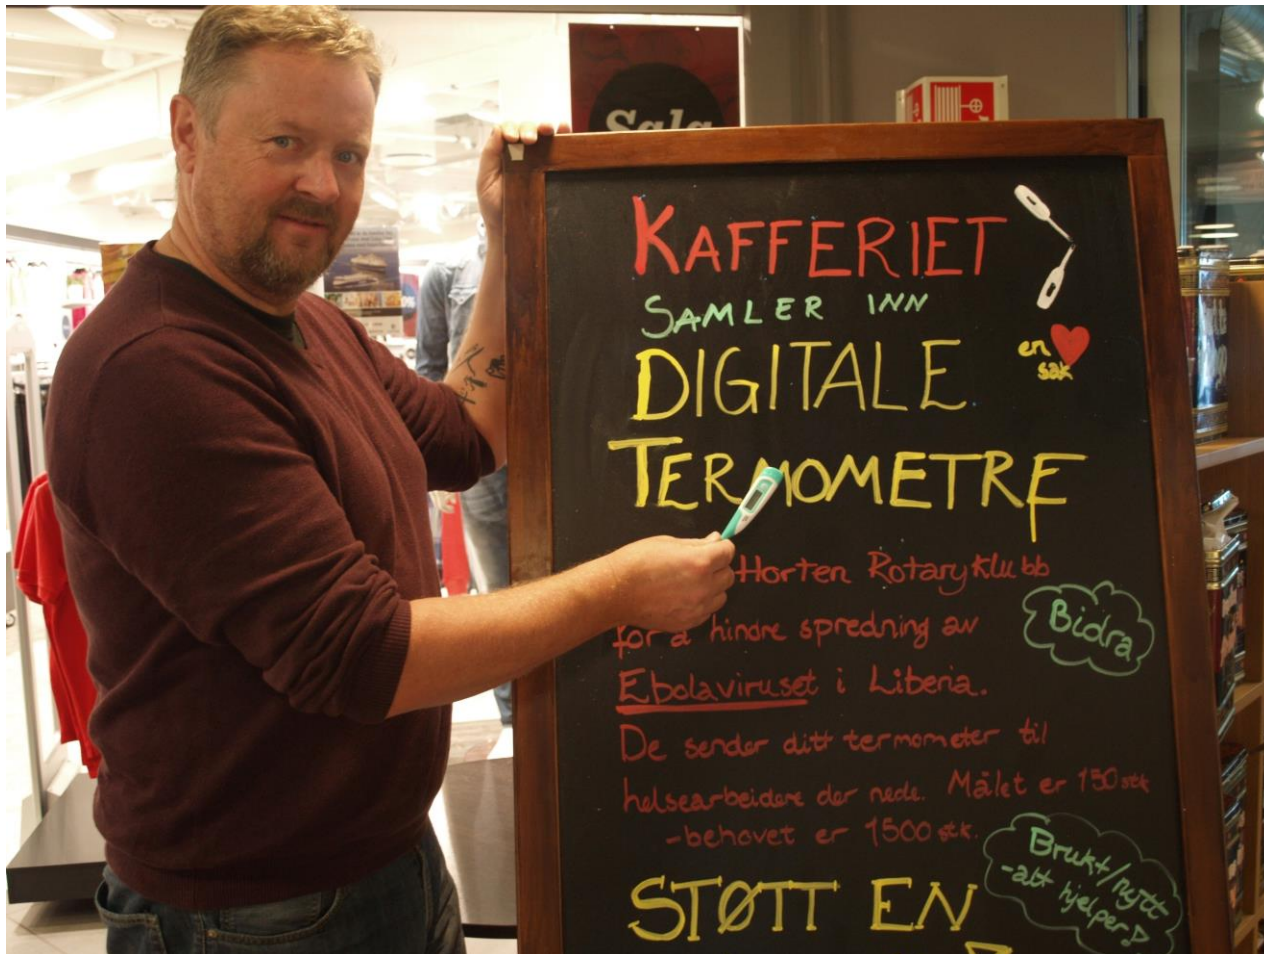 Salg
KAFFERIET
SAMLER INN
DIGITALE
en
sak
TERMOMETRE
Horten Rotaryklubb
for å hindre spredning av
Ebolaviruset i Liberia.
Bidra
De sender ditt termometer til
helsearbeidere der nede. Målet er 150 stk
-behovet er 1500 stk.
Brukt/nytt
-alt hjelper!
STØTT EN